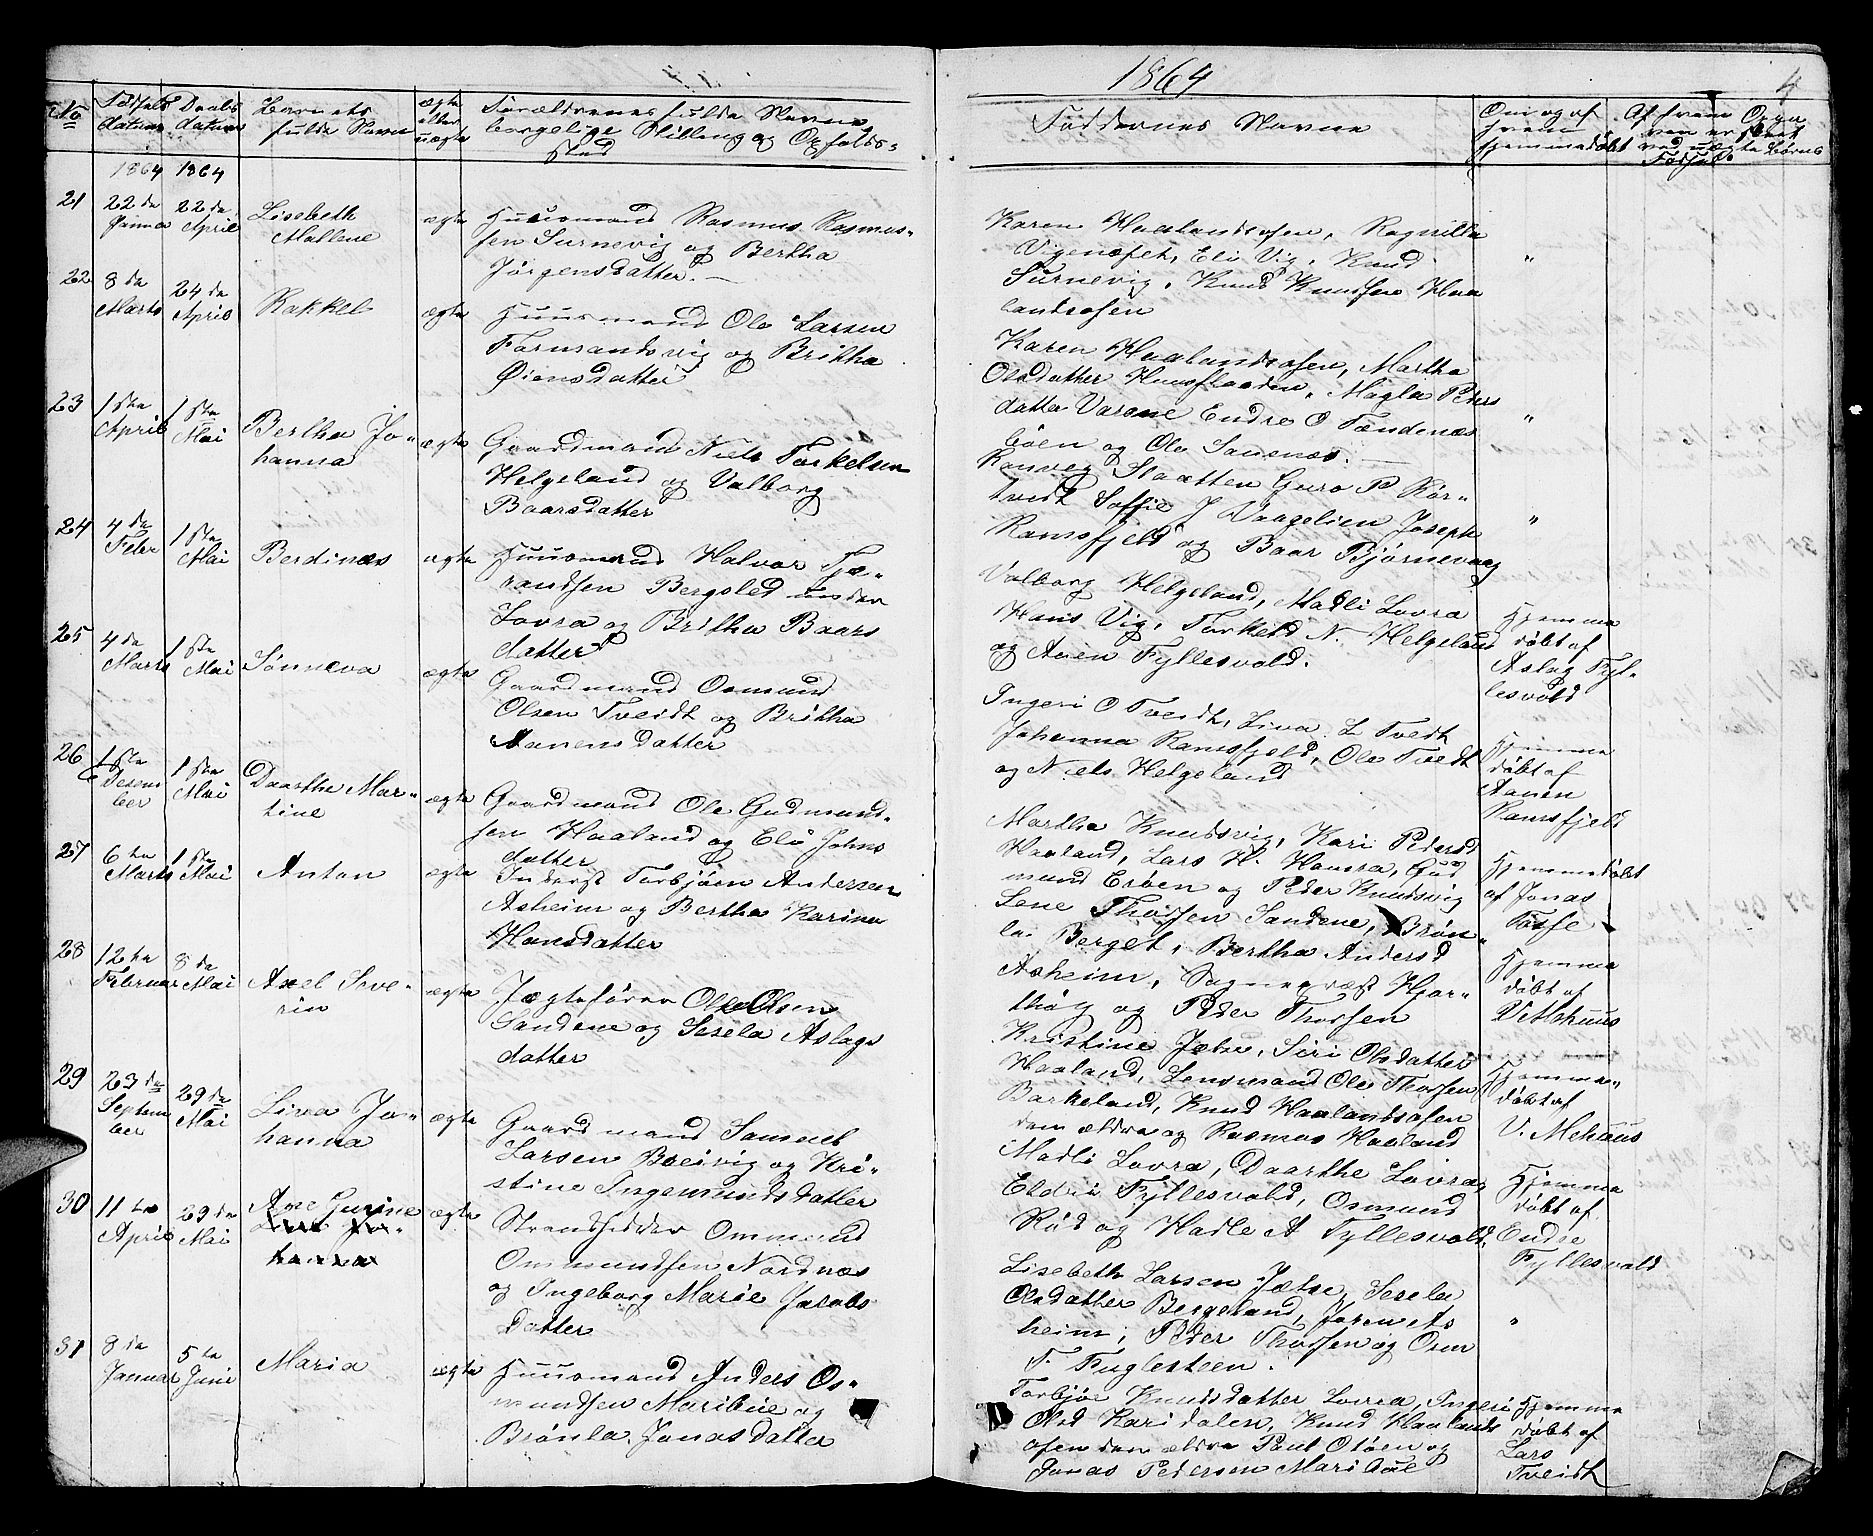 1864
4
No
Fødsels datum
Daabs datum
Barnets fulde Navn
ægte eller uægte
Forældrenes fulde Navne
borgelige Stilling og Opholds-
sted
Faddernes Navne
Om og af
hvem
hjemmedøbt
1864 1864
21
22da Januar
22da April
Lisebeth
Mallene
ægte
Huusmand Rasmus Rasmus-
sen Surnevig og Bertha
Jørgensdatter.
Karen Haalandsosen, Ragnilla
Vigenæset, Eli Vig, Knud
Surnevig, Knud Knudsen Haa
landsosen
"
22
8da Marts
24da April
Rakkel
ægte
Huusmand Ole Larsen
og Britha
Øiensdatter
Karen Haalandsosen, Martha
Olsdatter Magla Peders
datter Varene Endre O Tændenæs
bøen og Ole Sannæs.
"
23
1ste April
1ste Mai
Bertha Jo-
hanna
ægte
Gaardmand Niels Torkelsen
Helgeland og Valborg
Baarsdatter
Ranveg Slaatten Guro P Rør-
tvedt Soffie J Vaagelien Joseph
Ramsfjeld og Baar Bjørnevaag
"
24
4da Feber
1ste Mai
Berdines
ægte
Huusmand Halvor Tjæ-
randsen Bergsled under
Lovra og Britha Baars
datter
Valborg Helgeland, Madli Lovra
Hans Vig, Torkeld N. Helgeland
og Anen Fyllesvold.
Hjemme
døbt af
Aslag Fyl-
lesvold
25
4da Marts
1ste Mai
Sønneva
ægte
Gaardmand Osmund
Olsen Tveidt og Britha
Aanensdatter
Ingeri O Tveidt, Liva L Tvedt
Johanna Ramsfjeld, Ole Tvedt
og Niels Helgeland
Hjemme
døbt af
Aanen
Ramsfjeld
26
1ste Desem
ber
1ste Mai
Daarthe Mar-
tine
ægte
Gaardmand Ole Gudmund-
sen Haaland og Eli Johns
datter
Martha Knudsvig, Kari Pedersd
Haaland, Lars H. Hamra, Gud
mund Erøen og Peder Knudsvig
Hjemmedøbt
af Jonas
27
6te Marts
1ste Mai
Anton
ægte
Inderst Torbjørn Andersen
Asheim og Bertha Karine
Hansdatter
Lene Thorsen Sandene, Brøn-
la Berget, Bertha Andersd
Asheim, Sogneprest Hjor-
thøy og Peder Thorsen
Hjemme
døbt af
V. Mehuus
28
12te Februar
8da Mai
Axel Seve-
rin
ægte
Jægtefører Ole Olsen
Sandene og Sesela Aslags
datter
Kristine Jelse, Siri Olsdatter
Haaland, Lensmand Ole Thorsen
Barkeland, Knud Haalandsosen
den ældre og Rasmus Haaland
Hjemme-
døbt af
V. Mehuus
29
23da Septem
ber
29da Mai
Liva Jo-
hanna
ægte
Gaardmand Samuel
Larsen Breivig og Kri-
stine Ingemundsdatter
Madli Lovra, Daarthe Lovra,
Eldri Fyllesvold, Osmund
Rød og Hadle A Fyllesvold,
Hjemme
døbt af
Endre
Fyllesvold
30
11te April
29da Mai
Ane Gurine
Liva Jo-
hanna
ægte
Strandsidder Ommund
Ommundsen Nordnæs
og Ingeborg Marie Jacobs
datter
Lisebeth Larsen Jelse, Sesela
Olsdatter Bergeland, Joren As
heim, Peder Thorsen og Osm
T. Fuglesteen.
"
31
8da Januar
5te Juni
Maria
ægte
Huusmand Anders Os-
mundsen Maribøe og
Brønla Jonasdatter
Torbjør Knudsdatter Lovra, Ingeri
Olsd Karidalen, Knud Haalands
osen den ældre Paul Otøen og
Jonas Pedersen Maribøe
Hjemme
døbt af
Lars
Tveidt